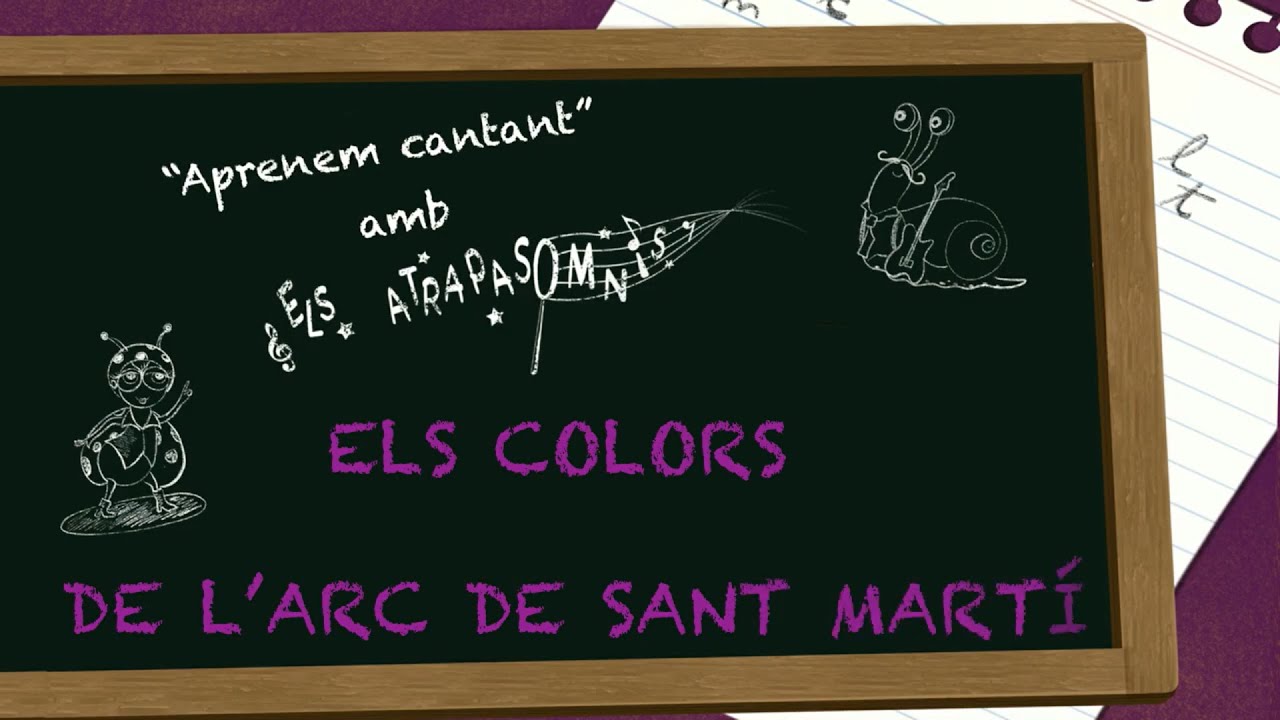 “Aprenem cantant”
amb
ELS ATRAPASOMNIS
ELS COLORS
DE L’ARC DE SANT MARTÍ
l
t